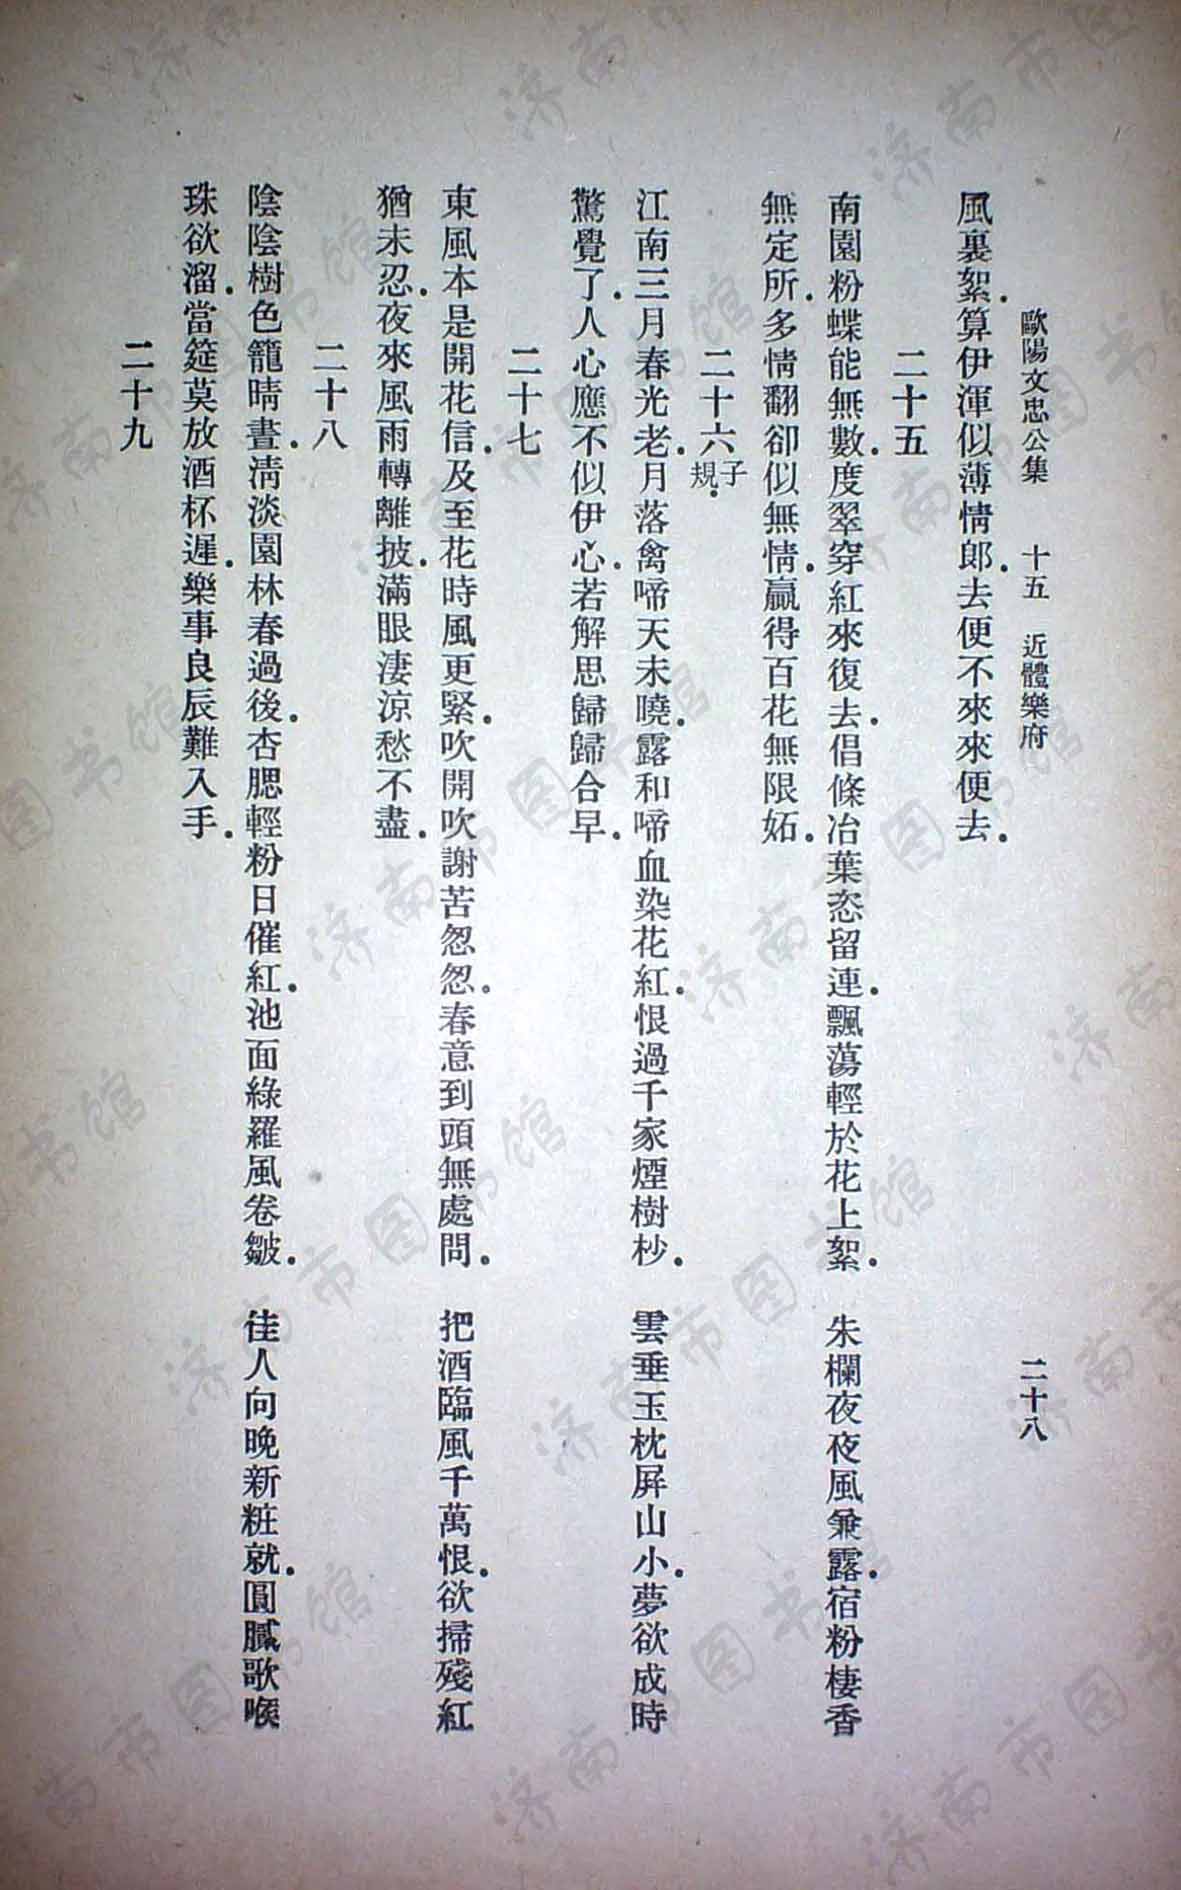 歐陽文忠公集　十五　近體樂府　二十八
風裏絮．算伊渾似薄情郎．去便不來來便去．
二十五
南園粉蝶能無數．度翠穿紅來復去．倡條冶葉恣留連．飄蕩輕於花上絮．　朱欄夜夜風兼露．宿粉棲香
無定所．多情翻卻似無情．贏得百花無限妬．
二十六　子規．
江南三月春光老．月落禽啼天未曉．露和啼血染花紅．恨過千家煙樹杪．　雲垂玉枕屏山小．夢欲成時
驚覺了．人心應不似伊心．若解思歸歸合早．
二十七
東風本是開花信．及至花時風更緊．吹開吹謝苦怱怱．春意到頭無處問．　把酒臨風千萬恨．欲掃殘紅
猶未忍．夜來風雨轉離披．滿眼淒涼愁不盡．
二十八
陰陰樹色籠晴晝．清淡園林春過後．杏腮輕粉日催紅．池面綠羅風卷皺．　佳人向晚新粧就．圓膩歌喉
珠欲溜．當筵莫放酒杯遲．樂事良辰難入手．
二十九
济南市图书馆